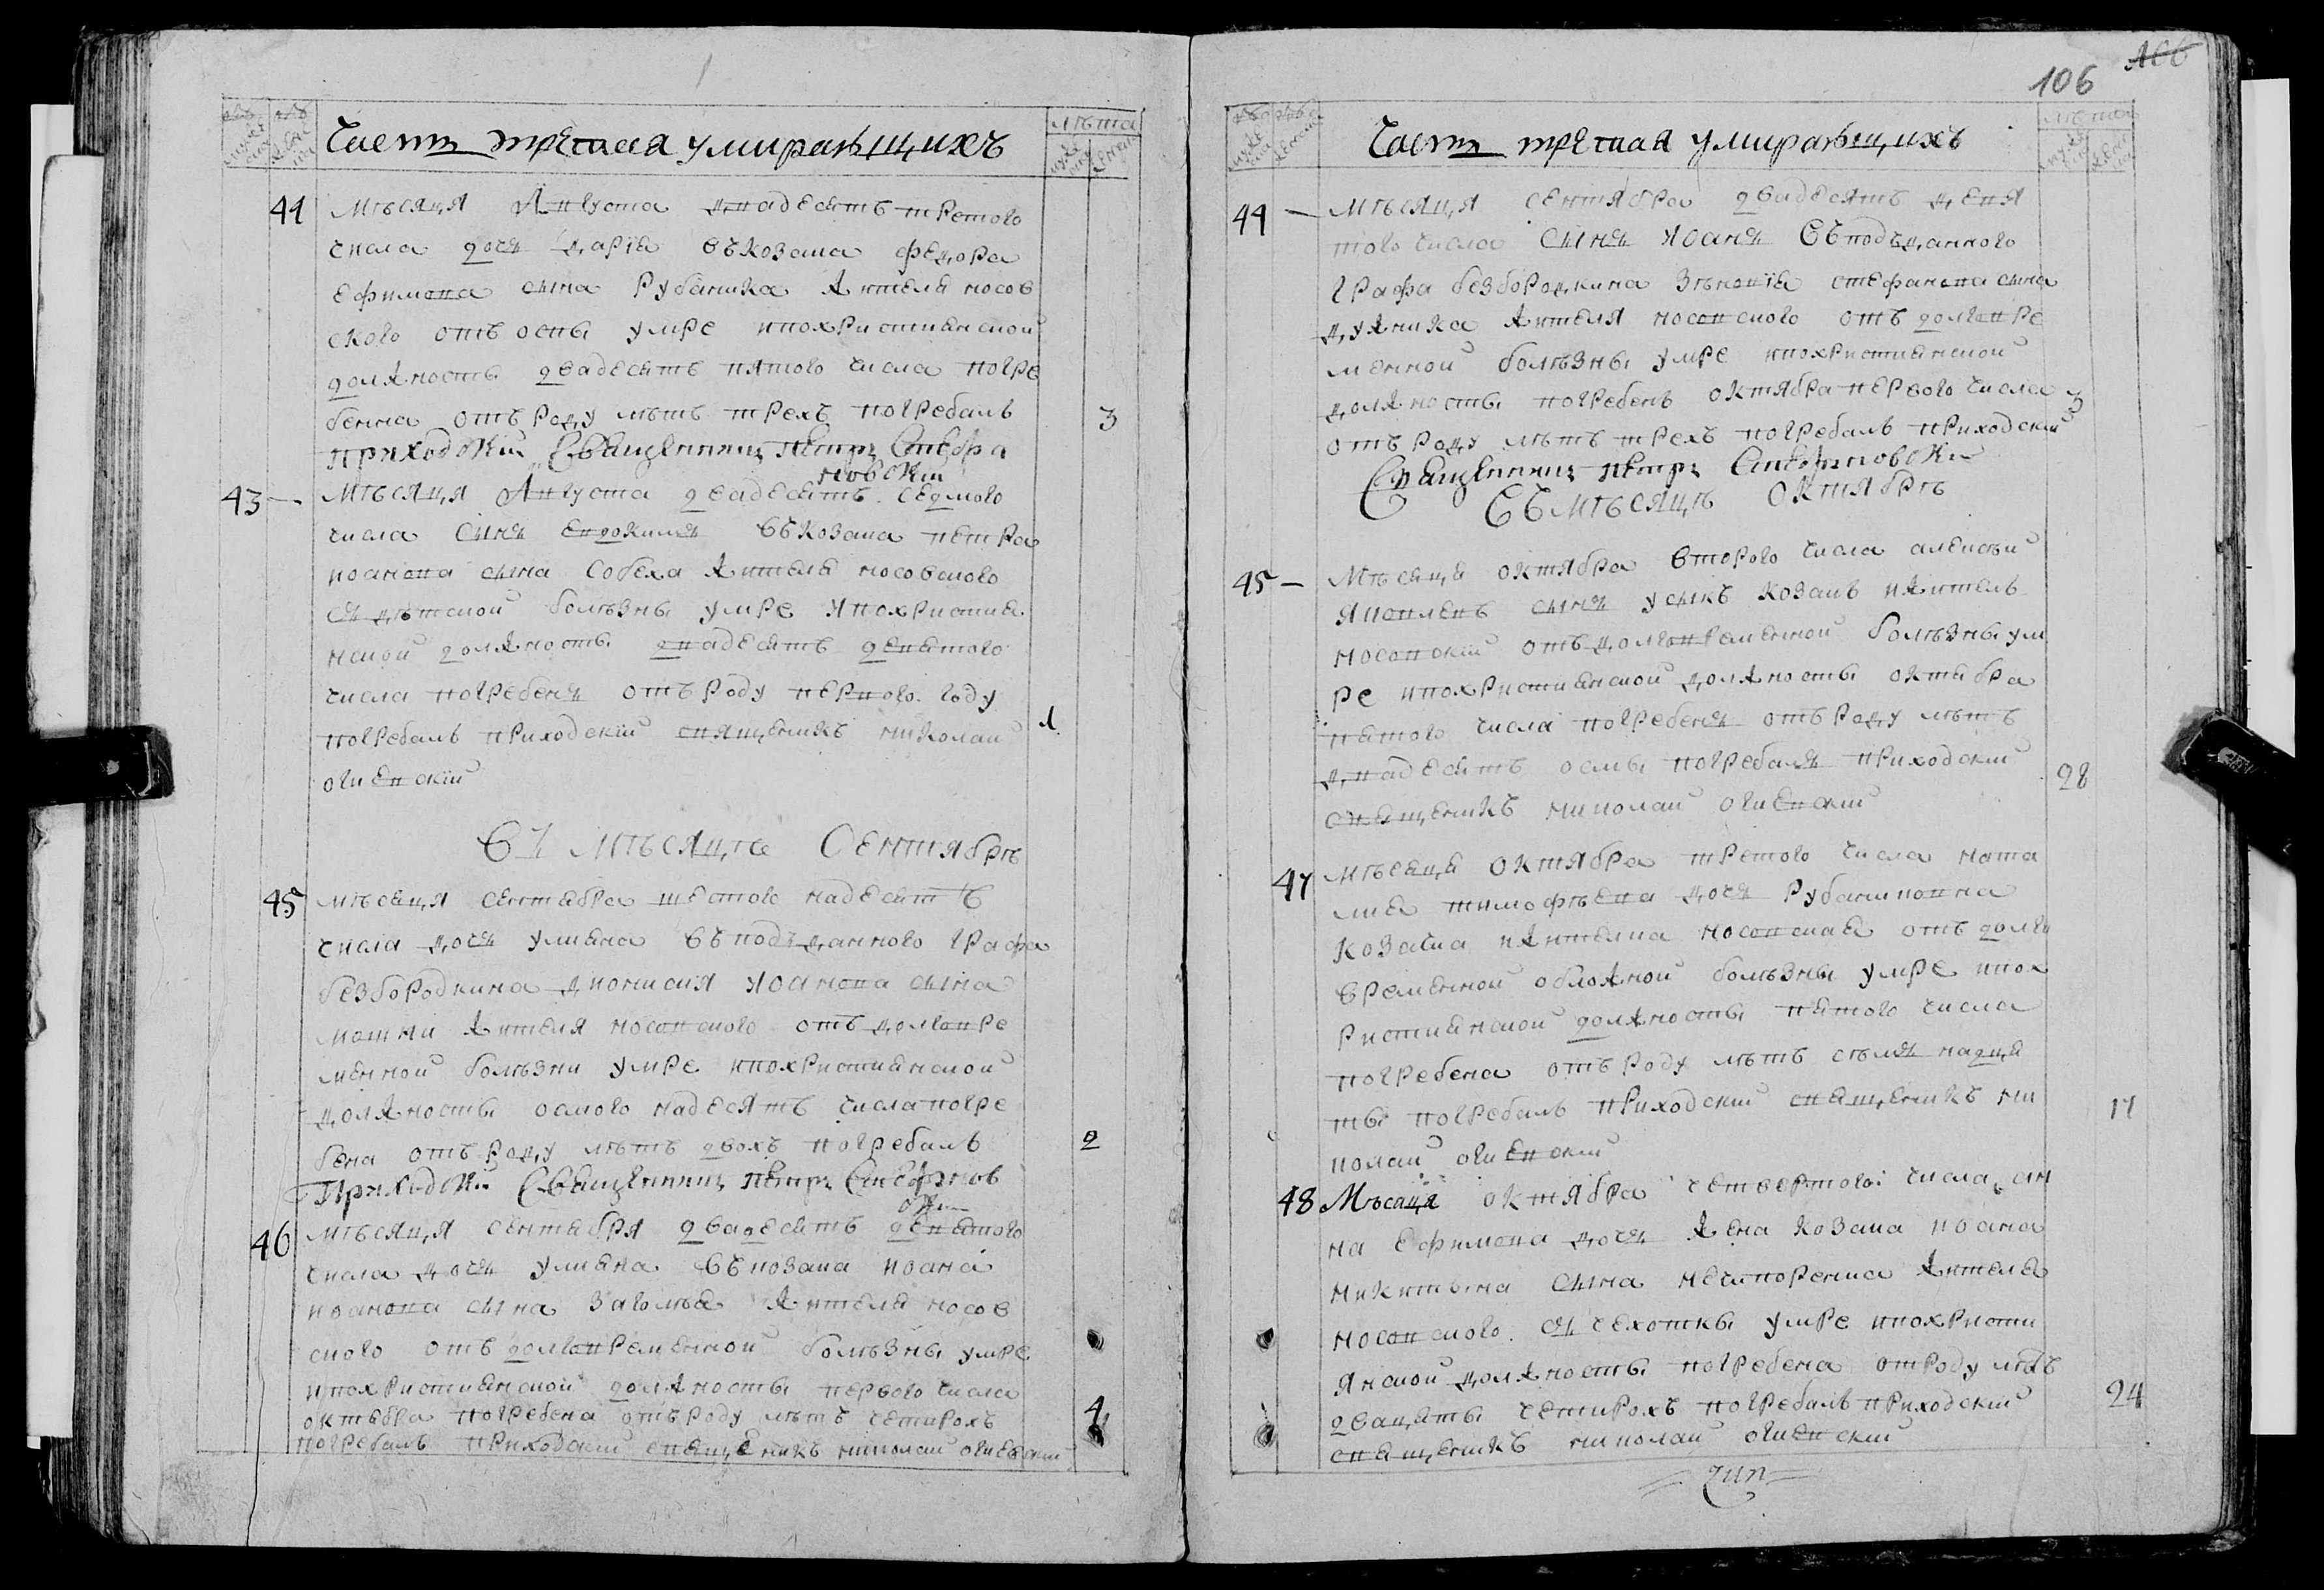 Часть третая умиравщихъ
лѣта
44 Мѣсяця Августа двадесятъ третого
числа дочь Дарїя въ козака Федора
Ефимова сына Рубаника жителя носов
ского отъ оспы умре ипохристиянской
должносты двадесятъ пятого числа погре
бенна отъ роду лѣтъ трехъ погребалъ 3
приходскій Священникъ Петръ Стефа
новскій
43 — Мѣсяця Августа двадесятъ седмого
числа сынъ Евдокимъ въ козака Петра
Иоанова сына Собеха жителя носовского
съ дѣтской болѣзны умре ипохристия
нской должносты двадесятъ девятого
числа погребенъ отъ роду первого году
погребалъ приходскій священикъ Николай 1
огиевскій
Въ Мѣсяцѣ Сентябрѣ
45 мѣсяця сентября шестого надесятъ
числа дочь Улияна въ подъданного графа
безбородкина Дионисия Иоанова сына
жителя носовского отъ долговре
менной болѣзни умре ипохристиянской
должносты осмого надесятъ числа погре
бена отъ роду лѣтъ двохъ погребалъ 2
Приходскій Священникъ Петръ Стефанов
скій
46 мѣсяця сентября двадесятъ девятого
числа дочь Улияна въ козака Иоана
Иоанова сына Заголѣя жителя носов
ского отъ долговременной болѣзны умре
ипохристиянской должносты первого числа
октября погребена отъ роду лѣтъ четирохъ 4
погребалъ приходскій священикъ николай огиевскій
106
Часть третая умиравщихъ
лѣта
44 — Мѣсяця сентября двадесятъ девя
того числа сынъ Иоанъ въ подъданного
графа безбородкина Зѣновїя Стефанова сына
Дужника жителя носовского отъ долговре
менной болѣзны умре ипохристиянской
должносты погребенъ октября первого числа 3
отъ роду лѣтъ трехъ погребалъ приходскій
Священникъ Петръ Стефановскій
Въ мѣсяцѣ Октябрѣ
45 — Мѣсяця октября второго числа алексѣй
Яковлевъ сынъ Усикъ козакъ ижитель
носовскій отъ долговременной болѣзны ум
ре ипохристиянской должносты октября
пятого числа погребенъ отъ роду лѣтъ
двадесятъ осмы погребалъ приходскій 28
священикъ николай огиевскій
47 мѣсяця октября третого числа ната
лия тимофѣева дочь Рубаниковна
козачка ижителка носовская отъ долго
временной обложной болѣзны умре ипох
ристиянской должносты пятого числа
погребена отъ роду лѣтъ сѣмъ надця
ты погребалъ приходскій священикъ ни 17
колай огиевскій
48 Мѣсяця октября четвертого числа ан
на Ефимова дочь жена козака Иоана
Никитына сына Нечипоренка жителя
носовского съ чехотки умре ипохристи
янской должносты погребена отроду лѣтъ
двацяты четирохъ погребалъ приходскій 24
священикъ николай огиевскій